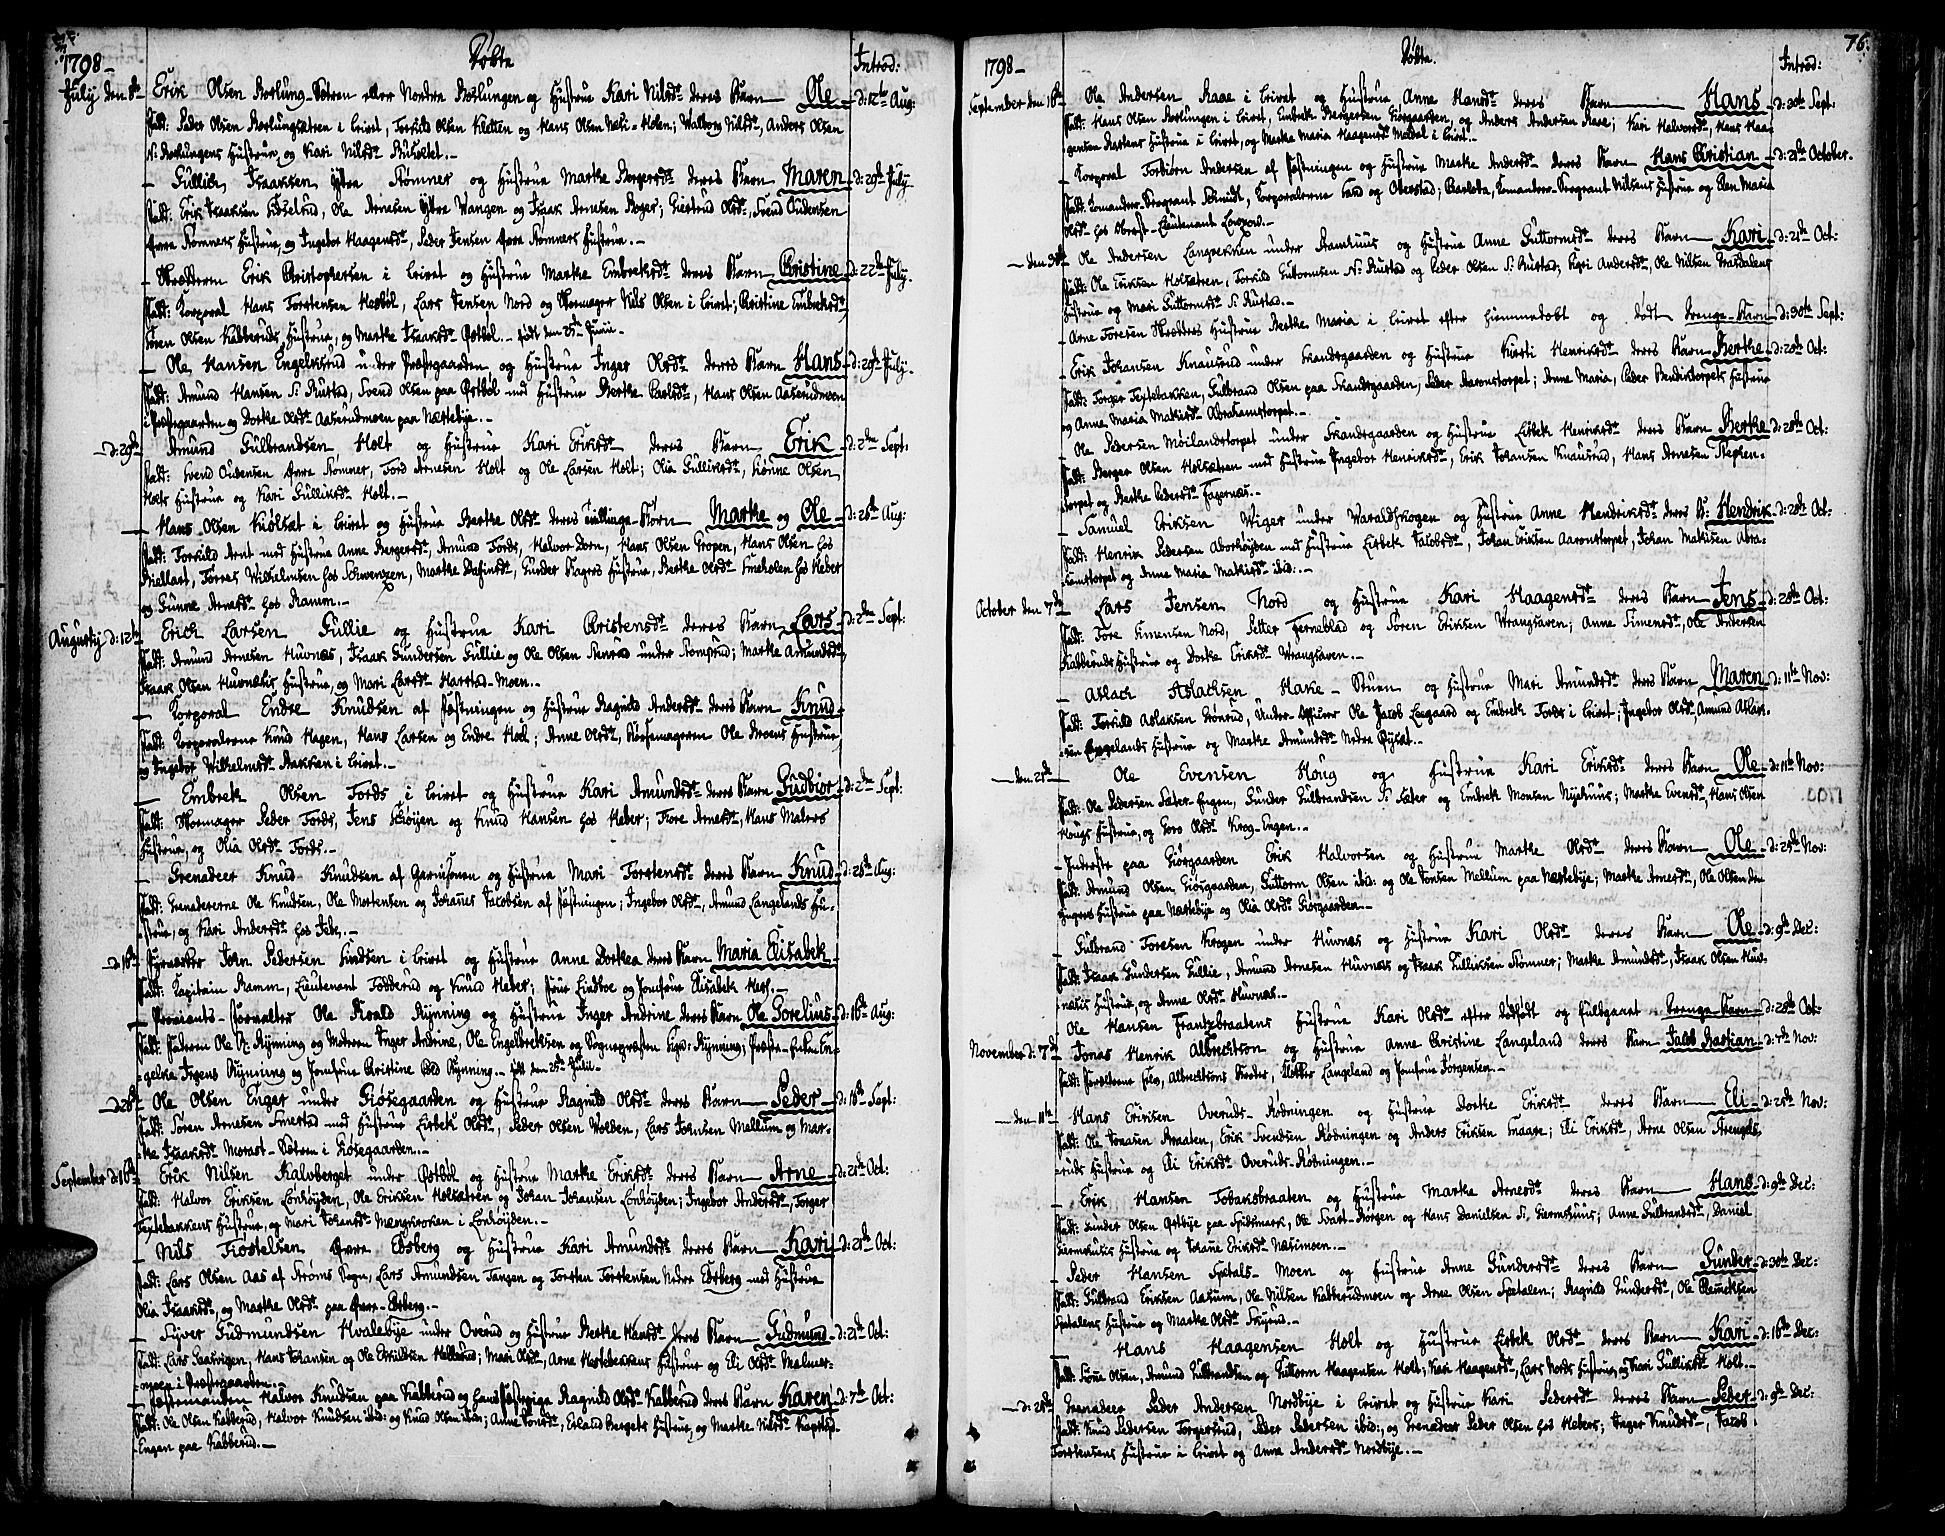 1798 Døbte Introd:
July den 8de Erik Olsen Sætren eller Nordre og Hustrue Kari Nilsdr deres Barn Ole d: 12te Aug:
Fadd: Peder Olsen i Leiret, Torkild Olsen Kletten og Hans Olsen Holen; Walborg Nilsdr, Anders Olsen
Hustrue, og Kari Nilsdr
Gullik Isaksen Ytre Stømner og Hustrue Marthe Bergersdr deres Barn Maren d: 29de July
Fadd: Erik Isaksen, Ole Arnesen Ytre Wangen og Isak Arnesen Berger; Giertrud Olsdr, Svend Oudensen
Øvre Stømners Hustrue, og Ingebor Haagensdr, Peder Jensen Øvre Stømners Hustrue.
Skrædderen Erik Christophersen i Leiret og Hustrue Marthe Embretsdr deres Barn Christine d: 22de July
Fadd: Korporal Hans Torstensen Hesbøl, Lars Jensen Nord og Skomager Nils Olsen i Leiret; Christine Embretsdr,
Søren Olsen Kabberuds Hustrue, og Marthe Isaksdr Østbøl. født den 25de Junii
Ole Hansen under Præstgaarden og Hustrue Inger Olsdr deres Barn Hans d: 29de July
Fadd: Amund Hansen S: Rustad, Svend Olsen paa Østbøl med Hustrue Berthe, Hans Olsen Aaserudmoen
i Præstgaarden og Dorthe Olsdr Aaserudmoen paa Næstebye.
d: 29de Amund Gulbrandsen Holt og Hustrue Kari Eriksdr deres Barn Erik d: 2den Sept:
Fadd: Svend Oudensen Øvre Stømner, Tord Arnesen Holt og Ole Larsen Holt; Olia Gulliksdr, Olsen
Holts Hustrue og Kari Gulliksdr Holt.
Hans Olsen i Leiret og Hustrue Berthe Olsdr deres tvillinge Børn Marthe og Ole d: 26de Aug:
Fadd: Torkild Arnt med Hustrue Anne Bergersdr, Amund Fords, Halvor Dorn, Hans Olsen Gropen, Hans Olsen hos
Wilhelmsen hos Schwenzen, Marthe, Gunder Hustrue, Berthe Olsdr hos Heber
og Gunne Arnesdr hos Ramm.
Augustij d: 12te Erich Larsen Gullie og Hustrue Kari Christensdr deres Barn Lars d: 2den Sept:
Fadd: Amund Arnesen Huvnæs, Isaak Gundersen Gullie og Ole Olsen under; Marthe Amundsdr,
Isaak Olsen Huvnæses Hustrue, og Mari Larsdr Harstad-Moen.
Korporal Endre Knudsen af Fæstningen og Hustrue Ragnild Andersdr deres Barn Knud
Fadd: Korporalerne Knud Hagen, Hans Larsen og Endre Hoel; Anne Olsdr, Ole Moens Hustrue,
og Ingebor Wilhelmsdr i Leiret.
Embret Olsen Fords i Leiret og Hustrue Kari Amundsdr deres Barn Gudbiør d: 2den Sept:
Fadd: Skomager Peder Fords, Jens og Knud Hansen hos Heber; Tore Arnesdr, Hans Malers
Hustrue, og Olia Olsdr Fords.
Grenadeer Knud Knudsen af Garnisonen og Hustrue Mari Torstensdr deres Barn Knud d: 26de Aug:
Fadd: Grenadererne Ole Knudsen, Ole Mortensen og Johannes Jacobsen af Fæstningen; Ingebor Olsdr, Amund Langelands Hu-
strue, og Kari Andersdr hos
d: 16de John Pedersen i Leiret og Hustrue Anne Dorthea deres Barn Maria Elisabeth
Fadd: Kapitain Ramm, Lieutenant og Knud Heber; Frue Lindboe og Jomfrue Elisabeth
Proviants-Forvalter Ole Rynning og Hustrue Inger Andrine deres Barn Ole Gorelius d: 16de Aug:
Fadd: Faderen Ole Rynning og Moderen Inger Andrine, Ole Engelbretsen og Sognepræsten Rynning; Præste-Enken En-
gelke Rynning og Jomfrue Christine Rynning. født 25de Julii
d: 26de Ole Olsen Enger under Giøsegaarden og Hustrue Ragnild Olsdr deres Barn Peder d: 16de Sept:
Fadd: Søren Arnesen med Hustrue Lisbeth Olsdr, Peder Olsen Wolden, Lars Johnsen Mellum og Mar-
the Isaksdr Morast-Sætren i Giøsegaarden.
September d: 16de Erik Nilsen Kalvberget under Østbøl og Hustrue Marthe Eriksdr deres Barn Arne d: 21de Oct:
Fadd: Halvor Eriksen Lønhøyden, Ole Eriksen Holsætren og Johan Johansen Lønhøyden; Ingebor Andersdr, Torger
Hustrue, og Mari Johansdr i Lønhøyden.
Nils Øvre Edsberg og Hustrue Kari Amundsdr deres Barn Kari d: 21de Oct:
Fadd: Lars Olsen Aas af Strøms Sogn, Lars Amundsen Tangen og Torsten Torstensen Nedre Edsberg med Hustrue
Olia Isaksdr, og Marthe Olsdr paa Øvre-Edsberg.
Syver Gudmundsen Hvalebye under Overud og Hustrue Berthe deres Barn Gudmund d: 21de Oct:
Fadd: Lars, Hans Johansen og Ole; Mari Olsdr, Arne Hestebekkens Hustrue og Eli Olsdr
moen i Præstgaarden.
Halvor Knudsen paa Kabberud og Ragnild Olsdr Kabberud deres Barn Karen d: 7de Oct:
Fadd: Ole Olsen Kabberud, Halvor Knudsen ibid: og Knud Olsen ibid:; Anne, Erland Bergets Hustrue, og Marthe Nilsdr
Engen paa Kabberud.
1798 Døbte. Introd: 76.
September den 16de Ole Andersen Raae i Leiret og Hustrue Anne Hansdr deres Barn Hans d: 30de Sept:
Fadd: Hans Olsen i Leiret, Embret Bergersen Giørgaarden, og Anders Andersen Raae; Kari Halvorsdr, Hans Haa-
gensen Hustrue i Leiret, og Marthe Maria Haagensdr Moldal i Leiret.
Korporal Torbiørn Andersen af Fæstningen og Hustrue Marthe Andersdr deres Barn Hans Christian d: 21de October.
Fadd: Komandeer-Sergeant Schmidt, Korporalerne og Oberstad; Komandeer-Sergeant Nilsens Hustrue og Elen Maria
Olsdr hos Obrist-Lieutenant
den 30te Ole Andersen Langrekken under og Hustrue Anne Guttormsdr deres Barn Kari d: 21de Oct:
Fadd: Ole Eriksen Holsætren, Torkild Guttormsen N: Rustad og Peder Olsen S: Rustad; Kari Andersdr, Ole Nilsen
Hustrue og Mari Guttormsdr S: Rustad.
Arne Toresen Skrædders Hustrue Berthe Maria i Leiret efter hiemmedøbt og dødt Drenge-Barn d: 30te Sept:
Erik Johansen Knausrud under Skandsgaarden og Hustrue Kirsti Henriksdr deres Barn Berthe d: 28de Oct:
Fadd: Torger, Gulbrand Olsen paa Skandsgaarden, Peder Aaronstorpet; Anne Maria, Peder Hustrue
og Anne Maria Matisdr Abrahamstorpet.
Ole Pedersen under Skandsgaarden og Hustrue Lisbeth Henriksdr deres Barn Berthe d: 28de Oct:
Fadd: Berger Olsen Holsætren med Hustrue Ingebor Henriksdr, Erik Johansen Knausrud, Hans Arnesen Stephen-
storpet og Berthe Pedersdr
Samuel Eriksen Wiger under Waraldskogen og Hustrue Anne Hendriksdr deres B: Hendrik d: 28de Oct:
Fadd: Henrik Pedersen Abborhøyden med Hustrue Lisbeth Jacobsdr, Johan Eriksen Aaronstorpet, Johan Matisen Abra-
hamstorpet og Anne Maria Matisdr ibid:.
October den 7de Lars Jensen Nord og Hustrue Kari Haagensdr deres Barn Jens d: 28de Oct:
Fadd: Tore Simensen Nord, Petter Ferneblad og Søren Eriksen Wrangsaven; Anne Simensdr, Ole Andersen
Kabberuds Hustrue og Dorthe Eriksdr Wrangsaven.
Aslach Aslachsen Hake-Stuen og Hustrue Mari Amundsdr deres Barn Maren d: 11te Nov:
Fadd: Torkild Aslaksen Grønrud, Under-Officeer Ole Jacob og Embret Fords i Leiret; Ingebor Olsdr, Amund Aslak-
sen Langelands Hustrue og Marthe Amundsdr Nedre Øysæt.
den 21de Ole Evensen Houg og Hustrue Kari Eriksdr deres Barn Ole d: 11te Nov:
Fadd: Ole Pedersen Sæter-Engen, Gunder Gulbrandsen S: Sæter og Embret Monsen Nyehuus; Marthe Evensdr, Hans Olsen
Hougs Hustrue, og Goro Olsdr Krog-Engen.
Inderste paa Giørgaarden Erik Halvorsen og Hustrue Marthe Olsdr deres Barn Ole d: 25de Nov:
Fadd: Amund Olsen Giørgaarden, Guttorm Olsen ibid: og Ole Jonsen Mellum paa Næstebye; Marthe Arnesdr, Ole Olsen
Engers Hustrue paa Næstebye og Olia Olsdr Giørgaarden.
Gulbrand Toresen Krogen under Huvnæs og Hustrue Kari Olsdr deres Barn Ole d: 9de Dec:
Fadd: Isaak Gundersen Gullie, Amund Arnesen Huvnæs og Isaak Gulliksen Stømner; Marthe Amundsdr, Isaak Olsen Huv-
næses Hustrue, og Anne Olsdr Huvnæs.
Ole Hansen Frantzbraatens Hustrue Kari Olsdr efter dødfødt og fuldgaaet Drenge-Barn d: 28de Oct:
November d: 7de Jonas Henrik Albrechtson og Hustrue Anne Christine Langeland deres Barn Jacob Bastian d: 7de Nov:
Fadd: Forældrene selv, Albrechtsons Broder, Klokker Langeland og Jomfrue Jørgensen.
den 11te Hans Eriksen Overuds-Rødningen og Hustrue Dorthe Eriksdr deres Barn Eli d: 25de Nov:
Fadd: Ole Braaten, Erik Svendsen Rødningen og Anders Eriksen; Eli Eriksdr, Arne Olsen
Hustrue og Eli Eriksdr Overuds-Rødningen.
Erik Hansen Tobaksbraaten og Hustrue Marthe Arnesdr deres Barn Hans d: 9de Dec:
Fadd: Gunder Olsen Østbye paa Spidsmark, Ole Svart-Børgen og Hans Danielsen S: Giermshuus; Anne Gulbrandsdr, Daniel
Giermshuses Hustrue og Eriksdr Næsimoen.
Peder Hansen Spetals-Moen og Hustrue Anne Gundersdr deres Barn Gunder d: 30te Dec:
Fadd: Gulbrand Eriksen Aasum, Ole Nilsen Kabberudmoen og Arne Olsen Spetalen; Ragnild Gundersdr, Ole
Spetalens Hustrue og Marthe Olsdr Skyrud.
Hans Haagensen Holt og Hustrue Lisbeth Olsdr deres Barn Kari d: 16de Dec:
Fadd: Olsen, Amund Gulbrandsen og Guttorm Haagensen Holt; Kari Haagensdr, Lars Nords Hustrue, og Kari Gulliksdr Holt.
d: 25de Grenadeer Peder Andersen Nordbye i Leiret og Hustrue Kari Pedersdr deres Barn Peder d: 9de Dec:
Fadd: Knud Pedersen Torgersrud, Peder Pedersen ibid:, og Grenadeer Peder Olsen hos Hebers; Inger Knudsdr, Jacob
Torstensens Hustrue i Leiret og Anne Andersdr Nordbye.